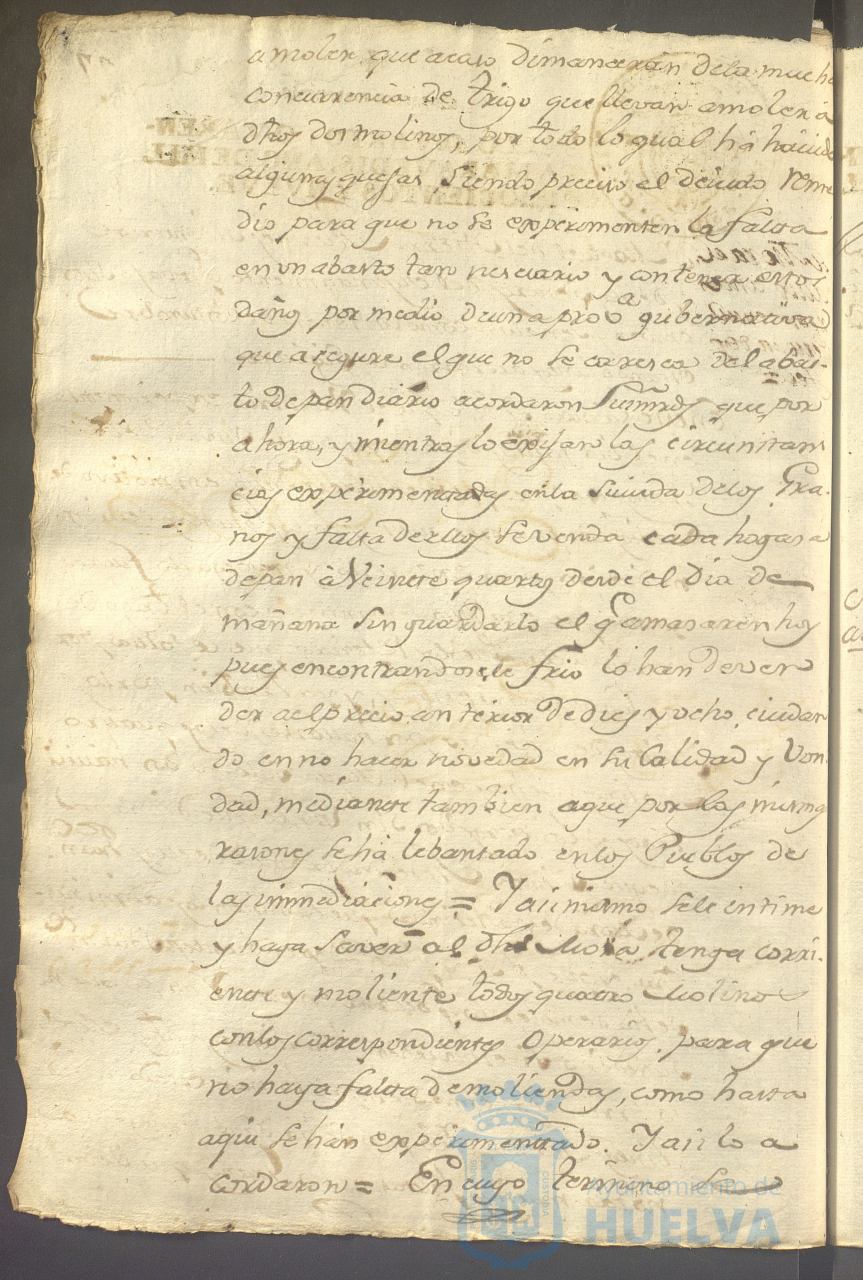 amoler, que acaso dimanarán dela mucha
concurrencia de trigo quellevan amoler á
dhos dos molinos, por todo lo qual há havido
algunas quejas, siendo preciso el devido reme
dio para que no se experimenten la falta
en un abasto tan nesesario y contenga estos
daños por medio de una prov.a gubernativa
que asegure el que no se caresca del abas-
to de pan diario acordaron Sus mrds. que por
ahora, y mientras lo exijan las circunstan
cias experimentadas en la suvida delos Gra-
nos y falta de ellos se venda cada hogasa
de pan à Veinte quartos desde el dia de
mañana sin guardarlo el q.e amasaren hoy
pues encontrandosele frio lo han de ven
der a el precio anterior de dies y ocho, cuidan
do en no hacer novedad en su Calidad y Von
dad, mediante tambien aque por las mismas
rasones se há lebantado en los Pueblos de
las immediaciones = Y asimismo se le intime
y haga saver al dho Mora tenga corri-
ente y moliente todos quatro Molinos
con los correspondientes Operarios, para que
no haya falta de moliendas, como hasta
aqui se hán experimentado. Y asi lo a
cordaron = En cuyo termino se
Ayuntamiento de
HUELVA